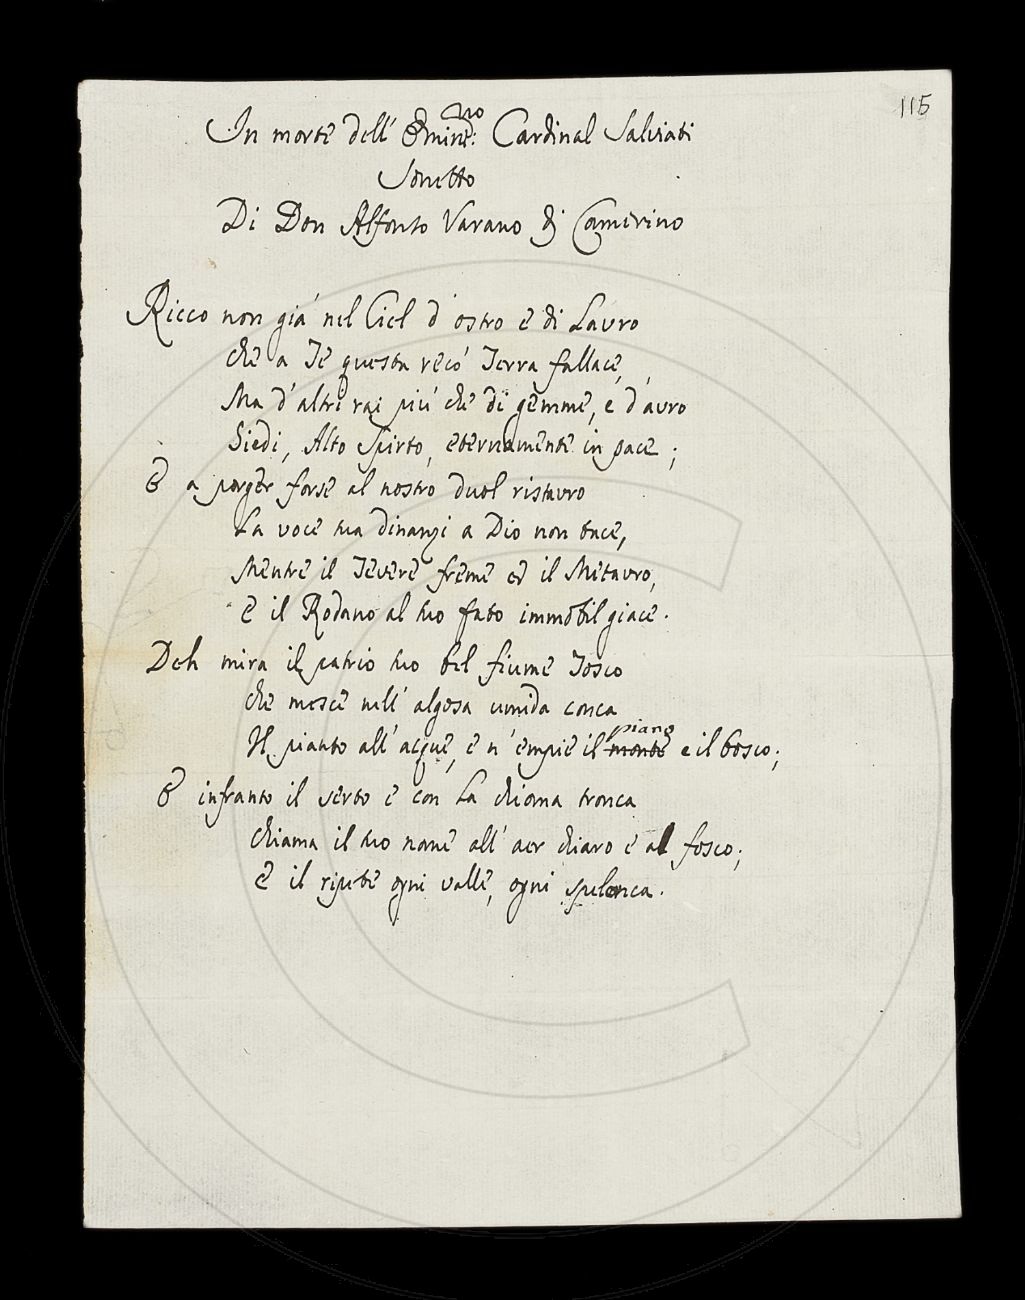 115
In morte dell' Eminᵐᵒ: Cardinal Salviati
Sonetto
Di Don Alfonso Varano di Camerino
Ricco non già nel Ciel d'ostro e di Lauro
che a Te questa recò Terra fallace,
Ma d'altri rai più che di gemme, e d'auro
Siedi, Alto Spirto, eternamente in pace;
E a porger forse al nostro duol ristauro
La voce tua dinanzi a Dio non tace,
Mentre il Tevere freme ed il Metauro,
E il Rodano al tuo fato immobil giace.
Deh mira il patrio tuo bel fiume Tosco
che mesce nell' algosa umida conca
Il pianto all' acque, e n'empie il monte piano e il bosco;
E infranto il serto e con La chioma tronca
chiama il tuo nome all' aer chiaro e al fosco;
E il ripete ogni valle, ogni spelonca.